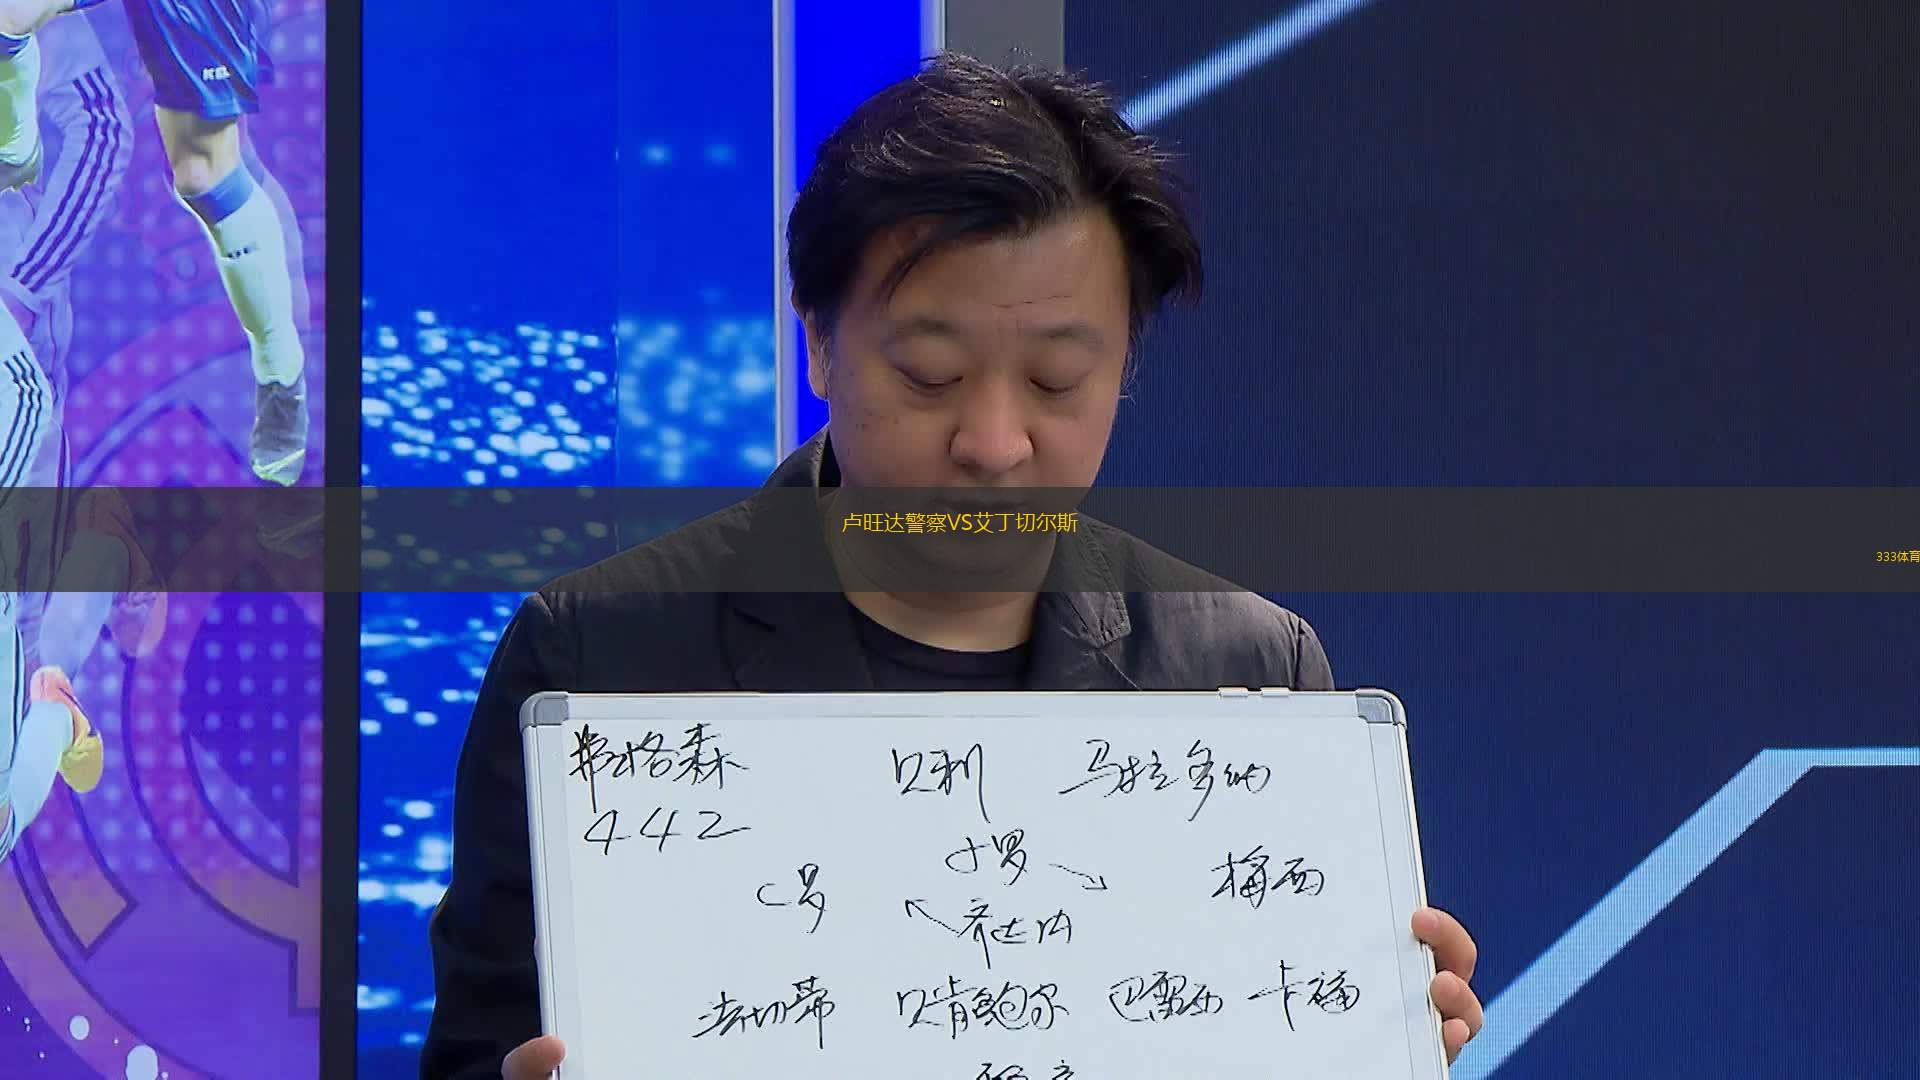 卢旺达警察VS艾丁切尔斯
333体育
弗格森 贝利 马拉多纳
442
小罗
C罗 梅西
齐达内
法切蒂 贝肯鲍尔 巴雷西 卡福